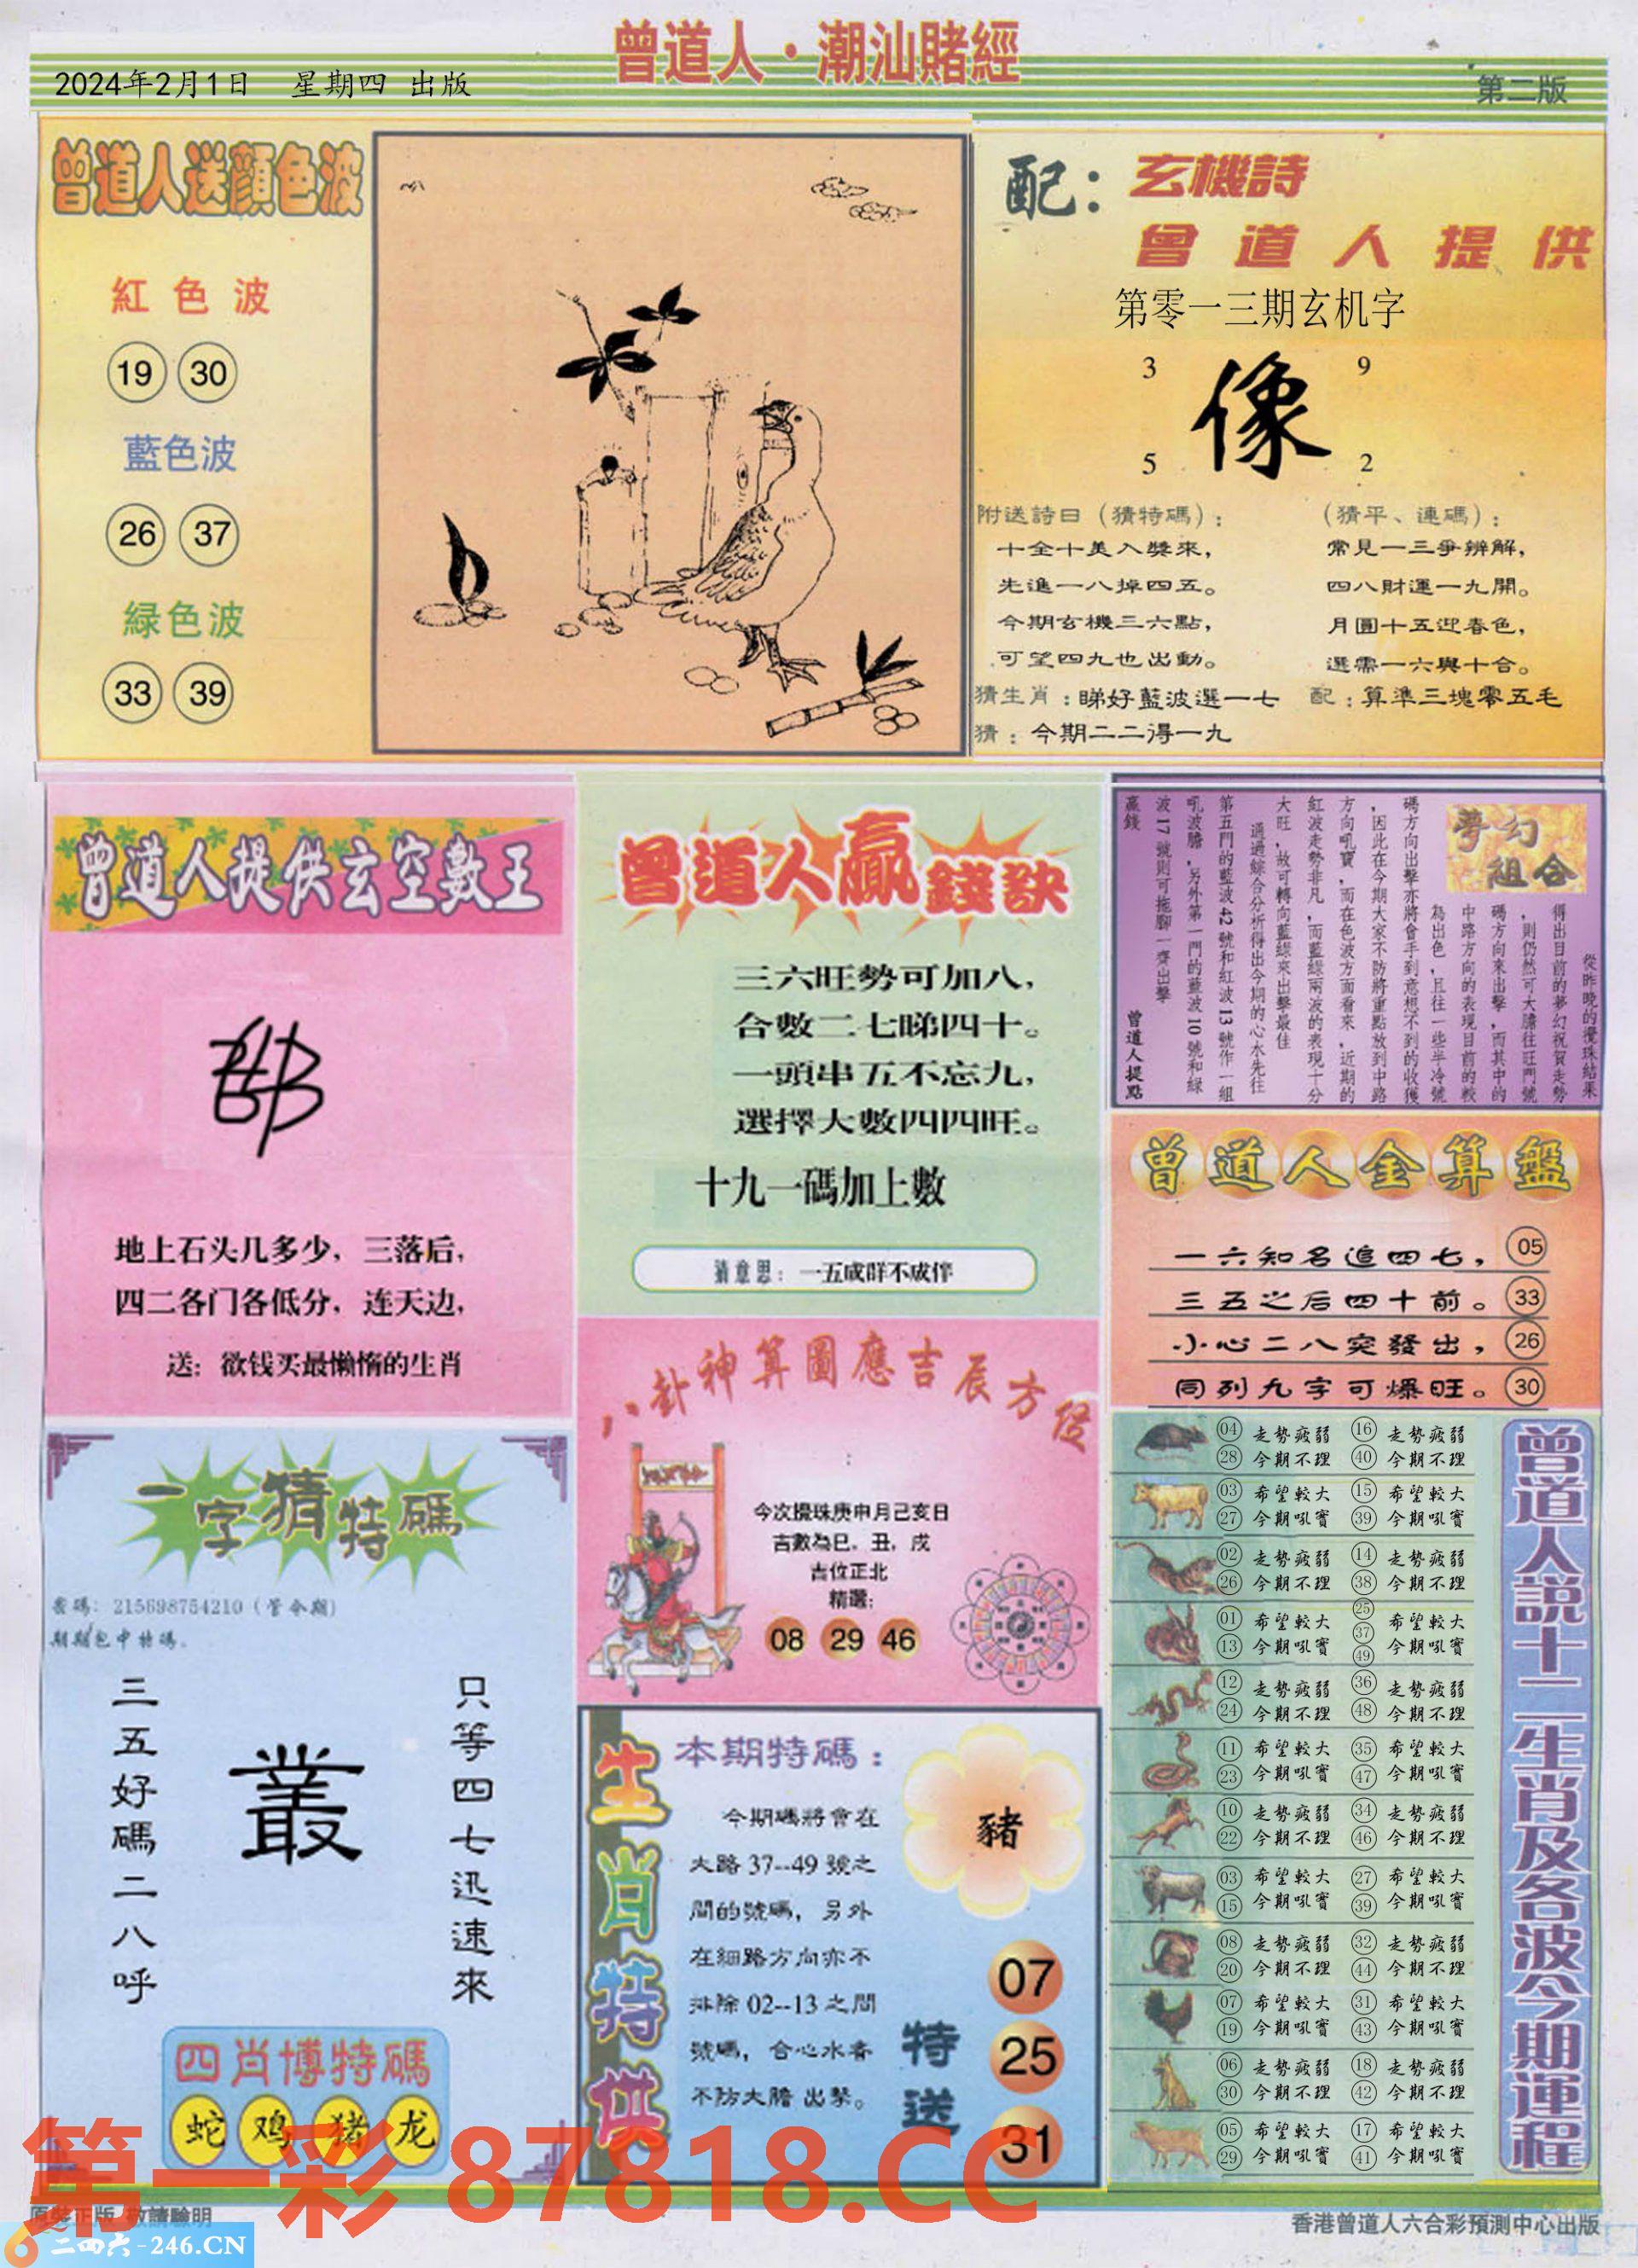 曾道人·潮汕賭經
2024年2月1日 星期四 出版
第二版
曾道人送顏色波
紅色波
19 30
藍色波
26 37
緑色波
33 39
配：玄機詩
曾道人提供
第零一三期玄机字
3 9
像
5 2
附送詩曰（猜特碼）：
十全十美入獎來，
先進一八掉四五。
今期玄機三六點，
可望四九也出動。
（猜平、連碼）：
常見一三爭辨解，
四八財運一九開。
月圓十五迎春色，
選需一六與十合。
猜生肖：睇好藍波選一七
配：算準三塊零五毛
猜：今期二二得一九
曾道人提供玄空數王
地上石头几多少，三落后，
四二各门各低分，连天边，
送：欲钱买最懒惰的生肖
曾道人贏錢訣
三六旺勢可加八，
合數二七睇四十。
一頭串五不忘九，
選擇大數四四旺。
十九一碼加上數
猜意思：一五成群不成伴
夢幻組合
從昨晚的攪珠結果
得出目前的夢幻祝賀走勢
，則仍然可大膽往旺門號
碼方向來出擊，而其中的
中路方向的表現目前的較
為出色，且往一些半冷號
碼方向出擊亦將會手到意想不到的收獲
，因此在今期大家不防將重點放到中路
方向吼寶，而在色波方面看來，近期的
紅波走勢非凡，而藍綠兩波的表現十分
大旺，故可轉向藍綠來出擊最佳
通過綜合分析得出今期的心水先往
第五門的藍波42號和紅波13號作一組
吼波膽，另外第一門的藍波10號和綠
波17號則可拖腳一齊出擊
贏錢 曾道人提點
曾道人金算盤
一六知名追四七，05
三五之后四十前。33
小心二八突發出，26
同列九字可爆旺。30
八卦神算圖應吉辰方位
今次攪珠庚申月己亥日
吉數為巳，丑，戌
吉位正北
精選：
08 29 46
一字猜特碼
密碼：215698754210（管今期）
期期包中特碼。
只等四七迅速來
叢
三五好碼二八呼
四肖博特碼
蛇 鸡 猪 龙
生肖特供
本期特碼：
今期碼將會在
大路37--49號之
間的號碼，另外
在細路方向亦不
排除02--13之間
號碼，合心水者
不防大膽出擊。
豬
特送
07
25
31
曾道人說十二生肖及各波今期運程
04 走勢疲弱 16 走勢疲弱
28 今期不理 40 今期不理
03 希望較大 15 希望較大
27 今期吼實 39 今期吼實
02 走勢疲弱 14 走勢疲弱
26 今期不理 38 今期不理
01 希望較大 25 37 希望較大
13 今期吼實 49 今期吼實
12 走勢疲弱 36 走勢疲弱
24 今期不理 48 今期不理
11 希望較大 35 希望較大
23 今期吼實 47 今期吼實
10 走勢疲弱 34 走勢疲弱
22 今期不理 46 今期不理
03 希望較大 27 希望較大
15 今期吼實 39 今期吼實
08 走勢疲弱 32 走勢疲弱
20 今期不理 44 今期不理
07 希望較大 31 希望較大
19 今期吼實 43 今期吼實
06 走勢疲弱 18 走勢疲弱
30 今期不理 42 今期不理
05 希望較大 17 希望較大
29 今期吼實 41 今期吼實
第一彩 87818.CC
原裝正版 敬請驗明
二四六-246.CN
香港曾道人六合彩預測中心出版